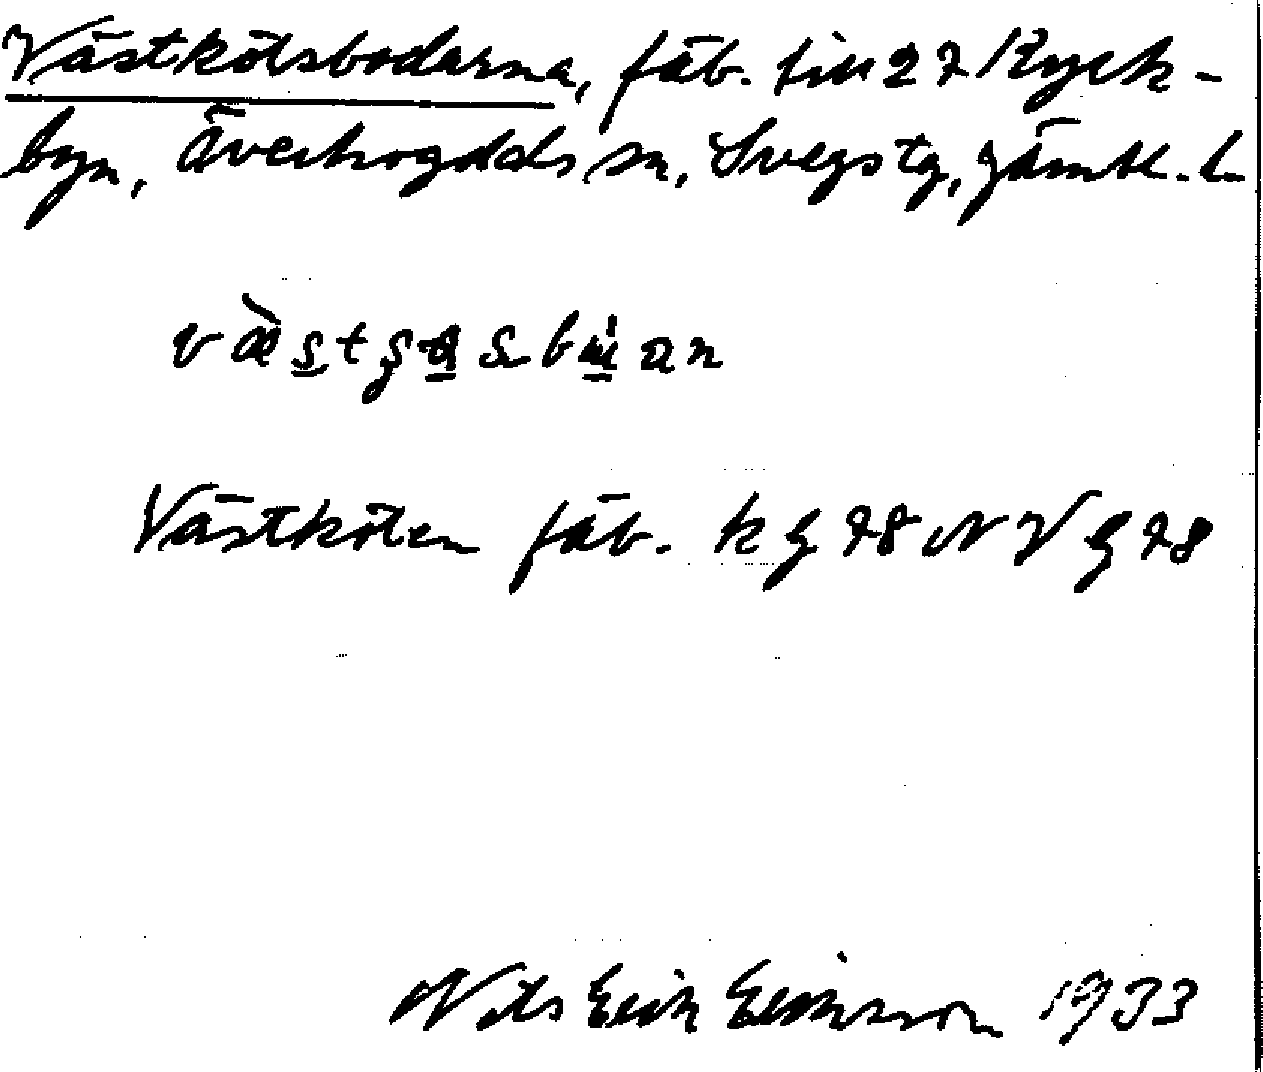 Västkölsbodarna, fäb. till 27 Ryck-
byn, Överhogdals sn, Svegs tg, Jämtl. l.
Västkölen fäb. kg 78 NV g 78
Nils Erik Eriksson 1933